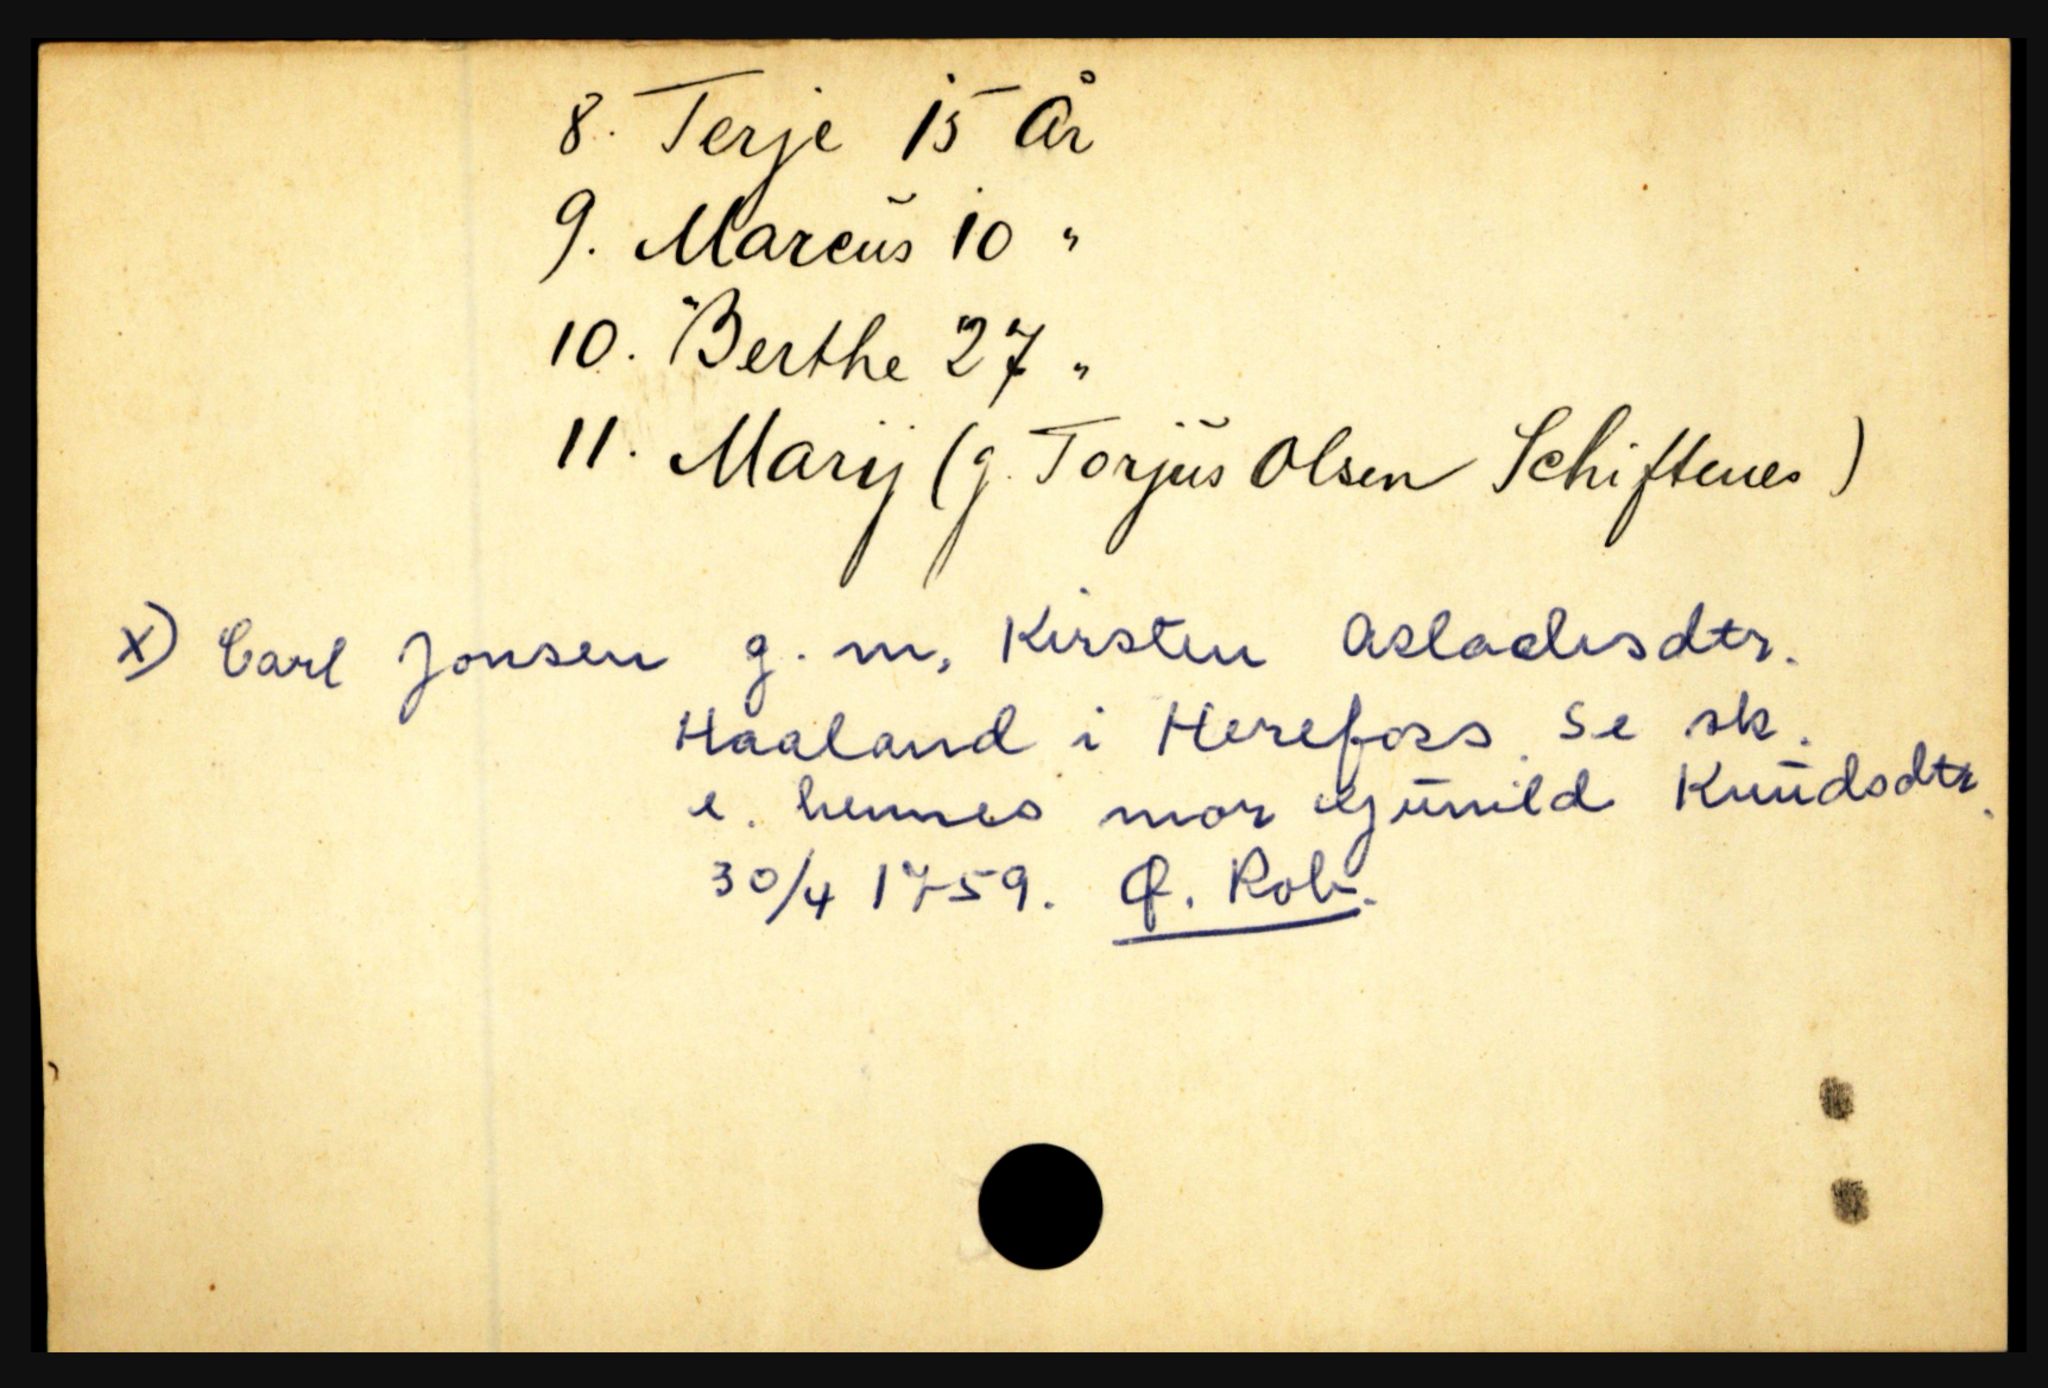 8. Terje 15 År
9. Marcus 10 "
10. Berthe 27 "
11. Marij (g. Torjus Olsen Schiftenes)
x) Carl Jonsen g. m. Kirsten Asladsdtr.
Haaland i Herefoss. Se sk.
e. hennes mor Gunild Knudsdtr.
30/4 1759. Rob.